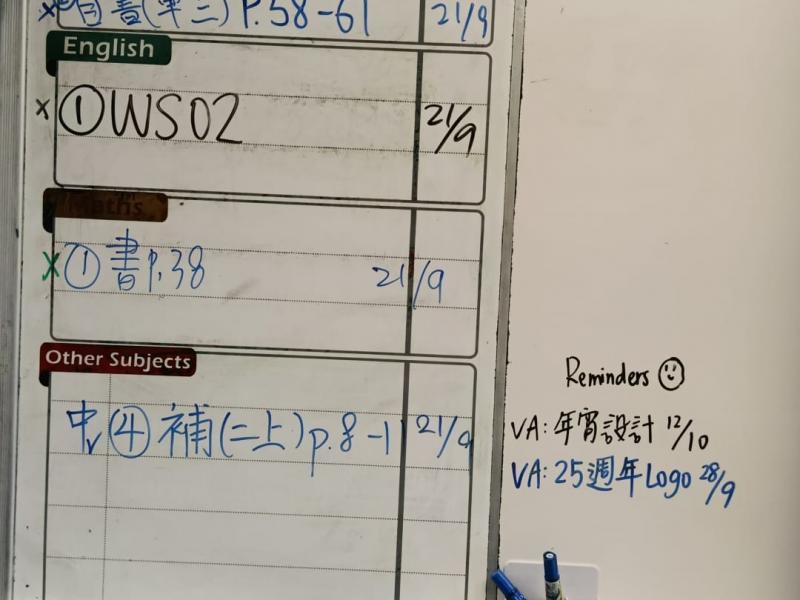 書(第三) P.58-61 21/9
English
x ①WS02 21/9
Maths
x ①書p.38 21/9
Other Subjects
中 ④ 補(二上) p.8-1 21/9
Reminders
VA: 年宵設計 12/10
VA: 25週年Logo 28/9